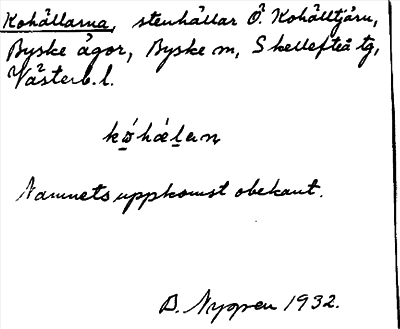 Kohällarna, stenhällar Ö. Kohälltjärn,
Byske ägor, Byske sn, Skellefteå tg,
Västerb. l.
Namnets uppkomst obekant.
1932.